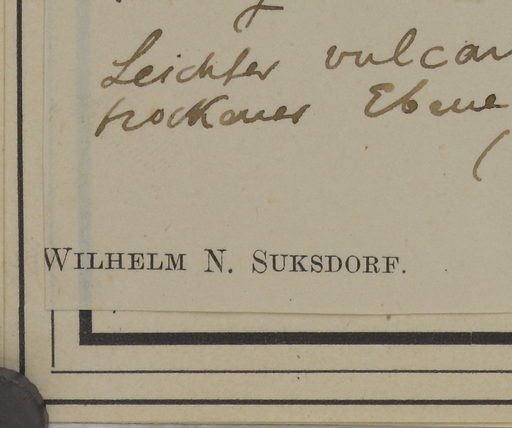 Leichter vulcan
trockener Ebene
(
WILHELM N. SUKSDORF.